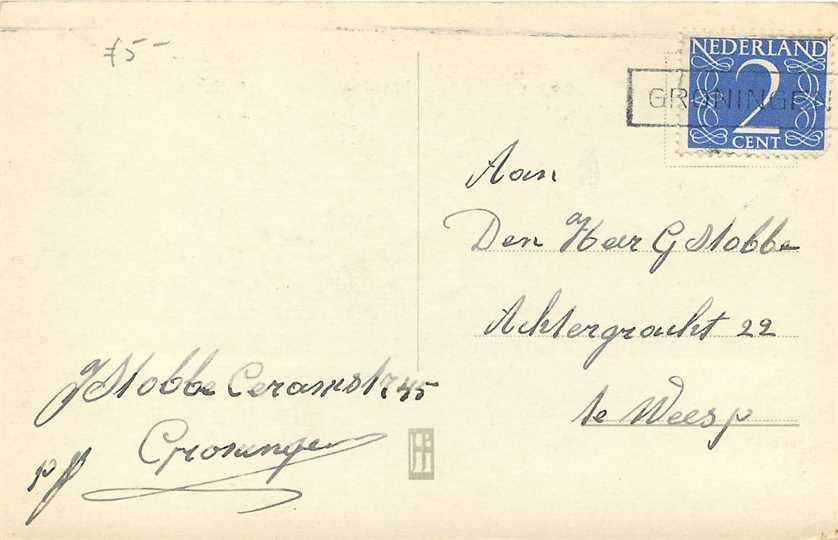 f5-
NEDERLAND
2
CENT
GRONINGEN
Aan
Den Heer G Stobbe
Achtergracht 22
te Weesp
J Stobbe Ceramstr. 45
Groningen